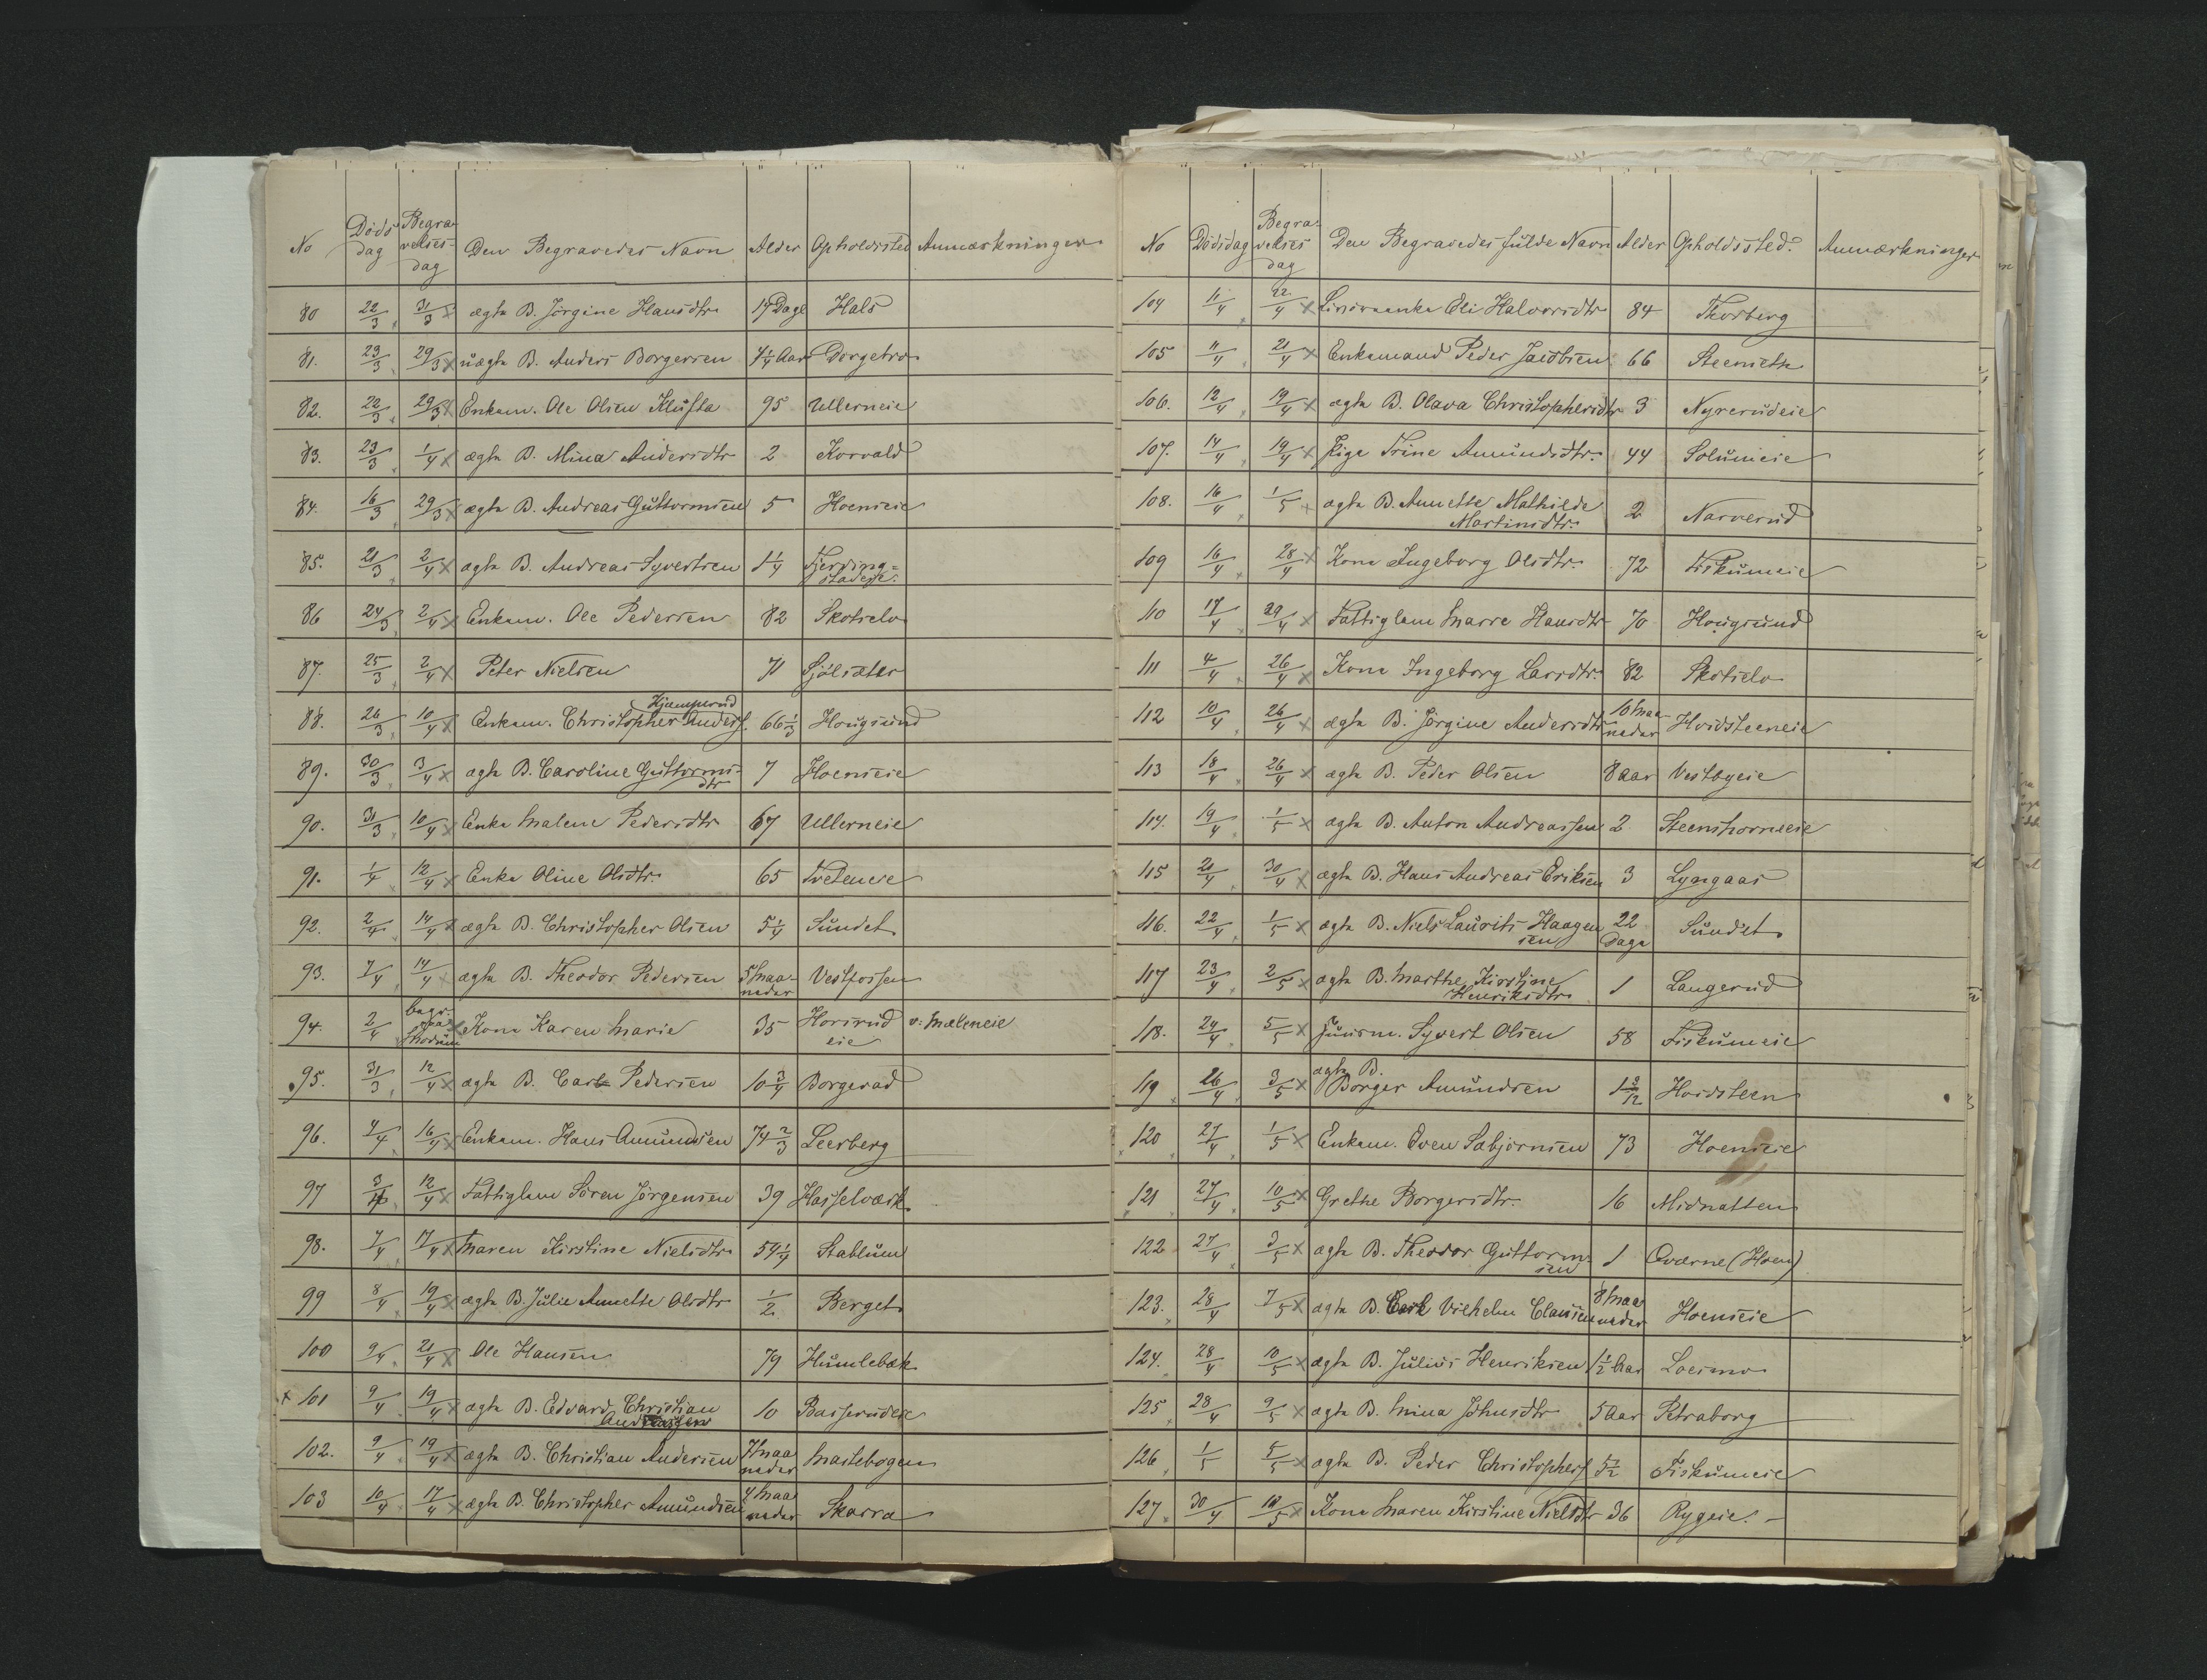 No Døds dag Begravelses dag Den Begravedes Navn Alder Opholdssted Anmærkninger
80 22/3 31/3 x ægte B. Jørgine Hansdtr 14 Dage Hals
81. 23/3 29/3 x uægte B. Anders Borgersen 4 1/4 Aar Dorgebro
82. 22/3 29/3 x Enkem. Ole Olsen Klufta 95 Ullerneie
83. 23/3 1/4 x ægte B. Mina Andersdtr 2 Korvald
84. 16/3 29/3 x ægte B. Andreas Guttormsen 5 Hoenseie
85. 21/3 2/4 x ægte B. Andreas Syvertsen 1 1/4 Fjerding=
86 24/3 2/4 x Enkem. Ole Pedersen 82 Skotselv
87. 25/3 2/4 x Peter Nielsen 71 Sjölsæter
Kjæmperud
88. 26/3 10/4 x Enkem. Christopher Anders. 66 1/3 Hougsund
89. 30/3 3/4 x ægte B. Caroline Guttorms-
dtr 7 Hoenseie
90. 31/3 10/4 x Enke Malene Pedersdtr 67 Ullerneie
91. 1/4 12/4 x Enke Oline Olsdtr. 65 Tveteneie
92. 2/4 14/4 x ægte B. Christopher Olsen 5 1/4 Sundet
93. 7/4 14/4 x ægte B. Theodor Pedersen 5 Maa-
neder Vestfossen
94. 2/4 begr. paa Modum x Kone Karen Marie 35 Horsrud
eie v: Mæleneie
95. 31/3 12/4 x ægte B. Carl Pedersen 10 3/4 Borgerad
96. 4/4 16/4 x Enkem. Hans Amundsen 74 2/3 Leerberg
97 3/4 12/4 x Fattiglem Søren Jørgensen 39 Hasselværk
98. 7/4 17/4 x Maren Kirstine Nielsdtr 54 1/4 Stablum
99 8/4 19/4 x ægte B. Julie Annette Olsdtr 1/2 Berget
100 9/4 21/4 x Ole Hansen 79 Humlebæk
x 101 9/4 19/4 x ægte B. Edvard Christian
Andreassen 10 Basserudex
102. 9/4 19/4 x ægte B. Christian Andersen 7 Maa
neder Mastebogen
103 10/4 17/4 x ægte B. Christopher Amundsen 4 Maa
neder Skarra
No Dödsdag Begravelses dag Den Begravedes fulde Navn Alder Opholdssted. Anmærkninger
104 11/4 22/4 x Eli Halvorsdtr 84 Thorberg
105 11/4 21/4 x Enkemand Peder Jacobsen 66 Steensæth
106. 12/4 19/4 x ægte B. Olava Christophersdtr 3 Nyrerudeie
107. 14/4 19/4 x Pige Trine Amundsdtr. 44 Solumeie
108. 16/4 1/5 x ægte B. Annette Mathilde
Martinsdtr. 2 Narverud
109 16/4 28/4 x Kone Ingeborg Olsdtr. 72 Fiskumeie
110 17/4 29/4 x Fattiglem Marre Hansdtr 70 Hougsund
111 4/4 26/4 x Kone Ingeborg Larsdtr. 82 Skotselv
112 10/4 26/4 x ægte B. Jørgine Andersdtr 10 Maa-
neder Hvidsteeneie
113 18/4 26/4 x ægte B. Peder Olsen 8 Aar Vestbyeie
114. 19/4 1/5 x ægte B. Anton Andreassen 2 Steenshorneeie
115 21/4 30/4 x ægte B. Hans Andreas Eriksen 3 Lyngaas
116. 22/4 1/5 x ægte B. Niels Laurits Haagen
sen 22
Dage Sundet
117 23/4 2/5 x ægte B. Marthe Kirstine
Henriksdtr. 1 Langerud
118. 24/4 5/5 x Huusm. Syvert Olsen 58 Fiskumeie
ægte B.
119 26/4 3/5 x Borger Amundsen 1 3/12 Hvidsteen
120 27/4 1/5 x Enkem. Even Sæbjørnsen 73 Hoenseie
121 27/4 10/5 x Grethe Borgersdtr. 16 Midnatten
122 27/4 3/5 x ægte B. Theodor Guttorm-
sen 1 Qværne (Hoen)
123. 28/4 7/5 x ægte B. Carl Vilhelm Clausen 8 Maa
neder Hoenseie
124. 28/4 10/5 x ægte B. Julius Henriksen 1 1/2 Aar Loesmo
125 28/4 9/5 x ægte B. Mina Johnsdtr 5 Aar Petraborg
126 1/5 5/5 x ægte B. Peder Christophers. 5 1/2 Fiskumeie
127. 30/4 10/5 x Kone Maren Kirstine Nielsdtr 36 Rygeie. -